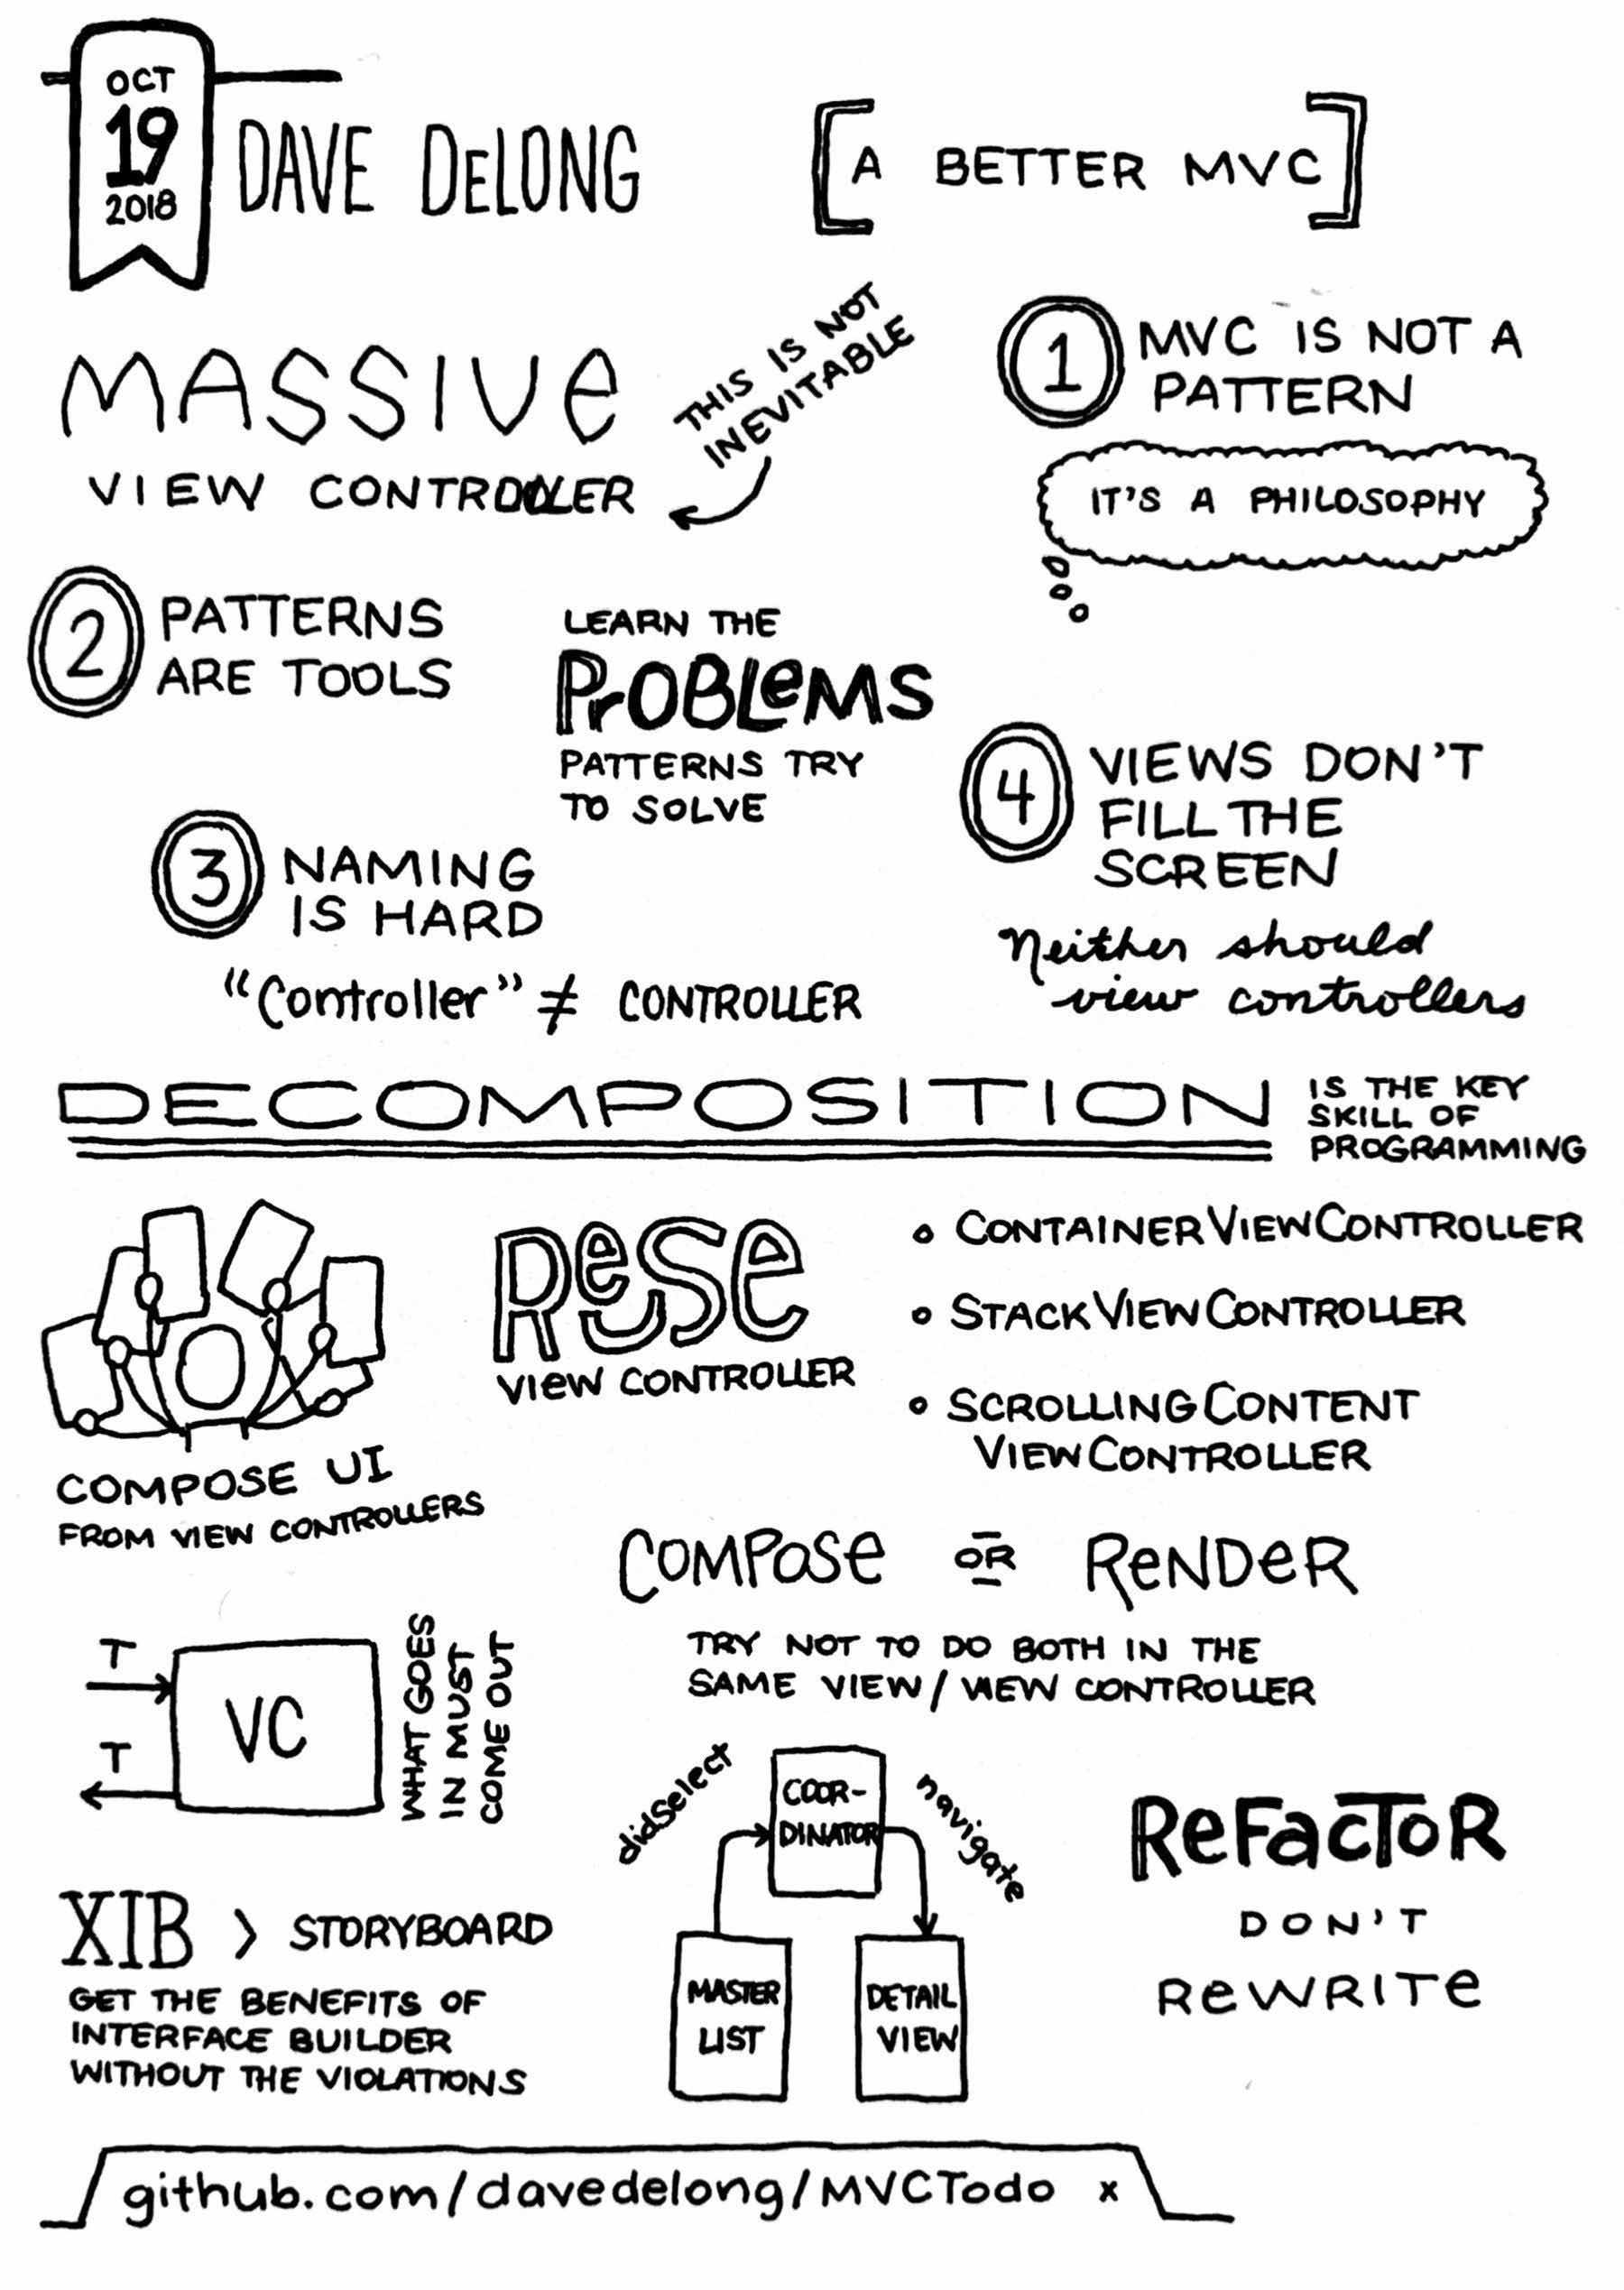 OCT
19
2018
DAVE DeLONG
[A BETTER MVC]
MASSIVE
VIEW CONTROLLER
THIS IS NOT
INEVITABLE
1
MVC IS NOT A
PATTERN
IT'S A PHILOSOPHY
2
PATTERNS
ARE TOOLS
LEARN THE
PrOBLeMS
PATTERNS TRY
TO SOLVE
3
NAMING
IS HARD
"Controller" ≠ CONTROLLER
4
VIEWS DON'T
FILL THE
SCREEN
Neither should
view controllers
DECOMPOSITION
IS THE KEY
SKILL OF
PROGRAMMING
COMPOSE UI
FROM VIEW CONTROLLERS
ReuSe
VIeW CONTROLLER
• CONTAINERVIEWCONTROLLER
• STACKVIEWCONTROLLER
• SCROLLINGCONTENT
VIEWCONTROLLER
COMPOSe OR ReNDeR
TRY NOT TO DO BOTH IN THE
SAME VIEW/VIEW CONTROLLER
T
T
VC
WHAT GOES
IN MUST
COME OUT
didSelect
COOR-
DINATOR
navigate
MASTER
LIST
DETAIL
VIEW
ReFacToR
DON'T
ReWRITe
XIB > STORYBOARD
GET THE BENEFITS OF
INTERFACE BUILDER
WITHOUT THE VIOLATIONS
github.com/davedelong/MVCTodo x